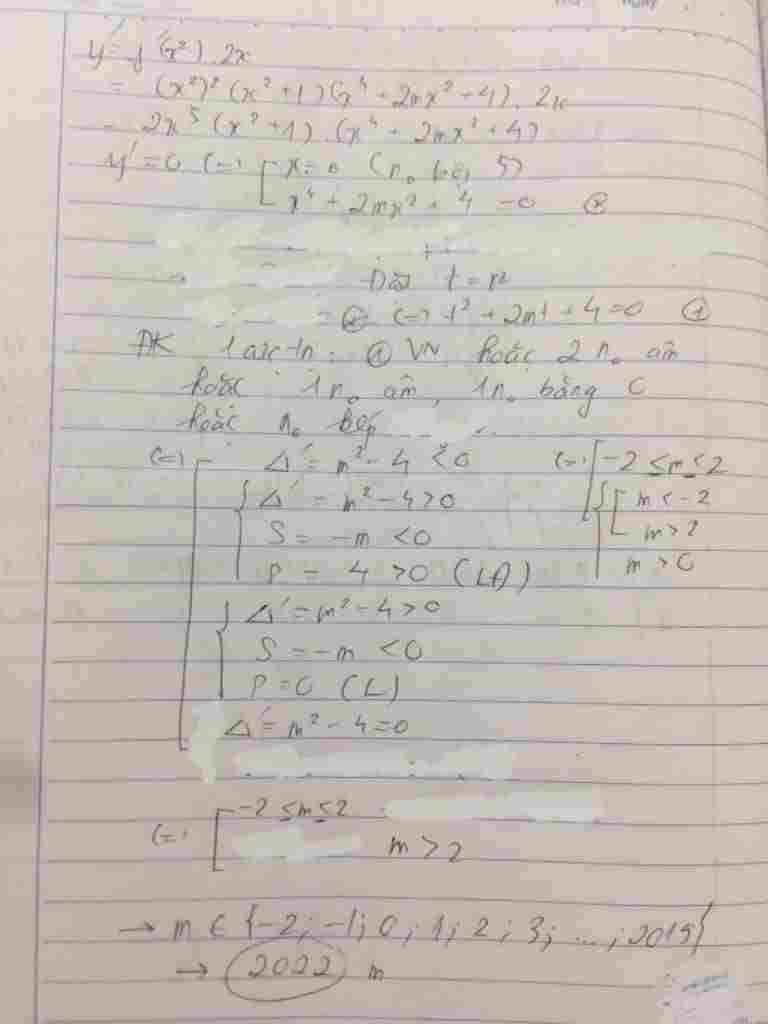 y' = f'(x²).2x
= (x²)² (x²+1)(x⁴+2mx²+4).2x
= 2x⁵ (x²+1).(x⁴+2mx²+4)
y'=0 (=) [ x=0 (n₀ bội 5)
x⁴+2mx²+4=0 (*)
Đặt t = x²
(*) (=) t²+2mt+4=0 ①
ĐK 1 cực tri: ① VN hoặc 2 n₀ âm
hoặc 1 n₀ âm, 1 n₀ bằng 0
hoặc n₀ kép
(=) [ Δ' = m²-4 < 0 (=) [ -2 ≤ m ≤ 2
{ Δ' = m²-4>0 { [ m < -2
S = -m <0 m > 2
P = 4 >0 (LĐ) m > 0
{ Δ' = m²-4>0
S = -m <0
P = 0 (L)
Δ' = m²-4=0
(=) [ -2 ≤ m ≤ 2
m > 2
→ m ∈ {-2; -1; 0; 1; 2; 3; ...; 2019}
→ 2022 m